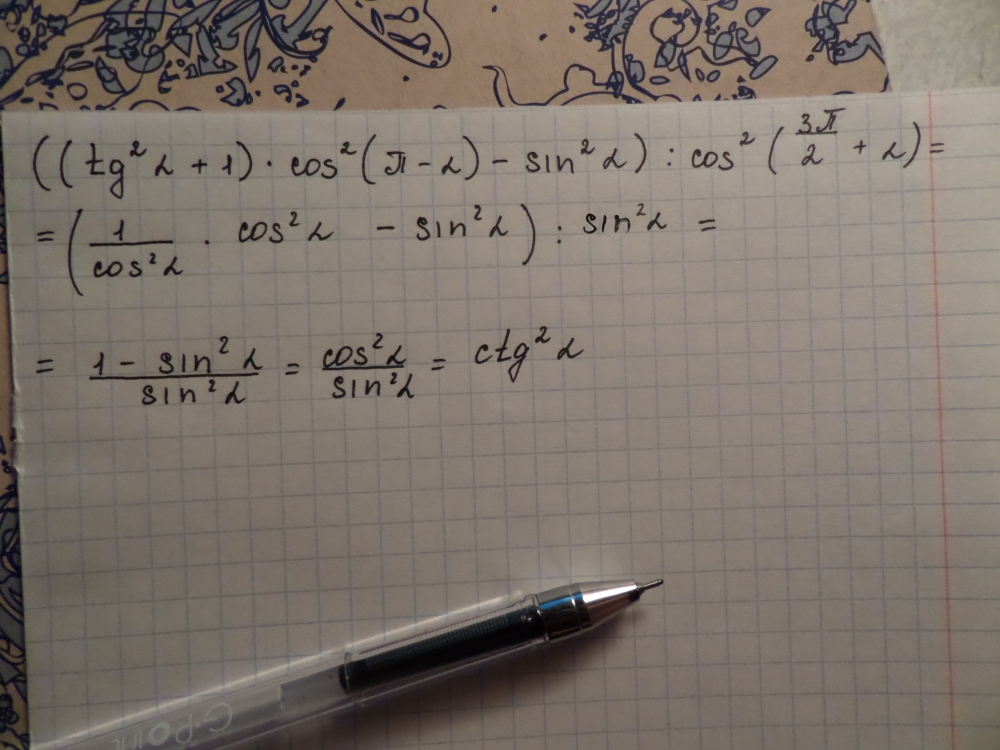 ((tg²α + 1) · cos²(π - α) - sin²α) : cos²(3π/2 + α) =
= (1/cos²α · cos²α - sin²α) : sin²α =
= (1 - sin²α)/sin²α = cos²α/sin²α = ctg²α
G-Point